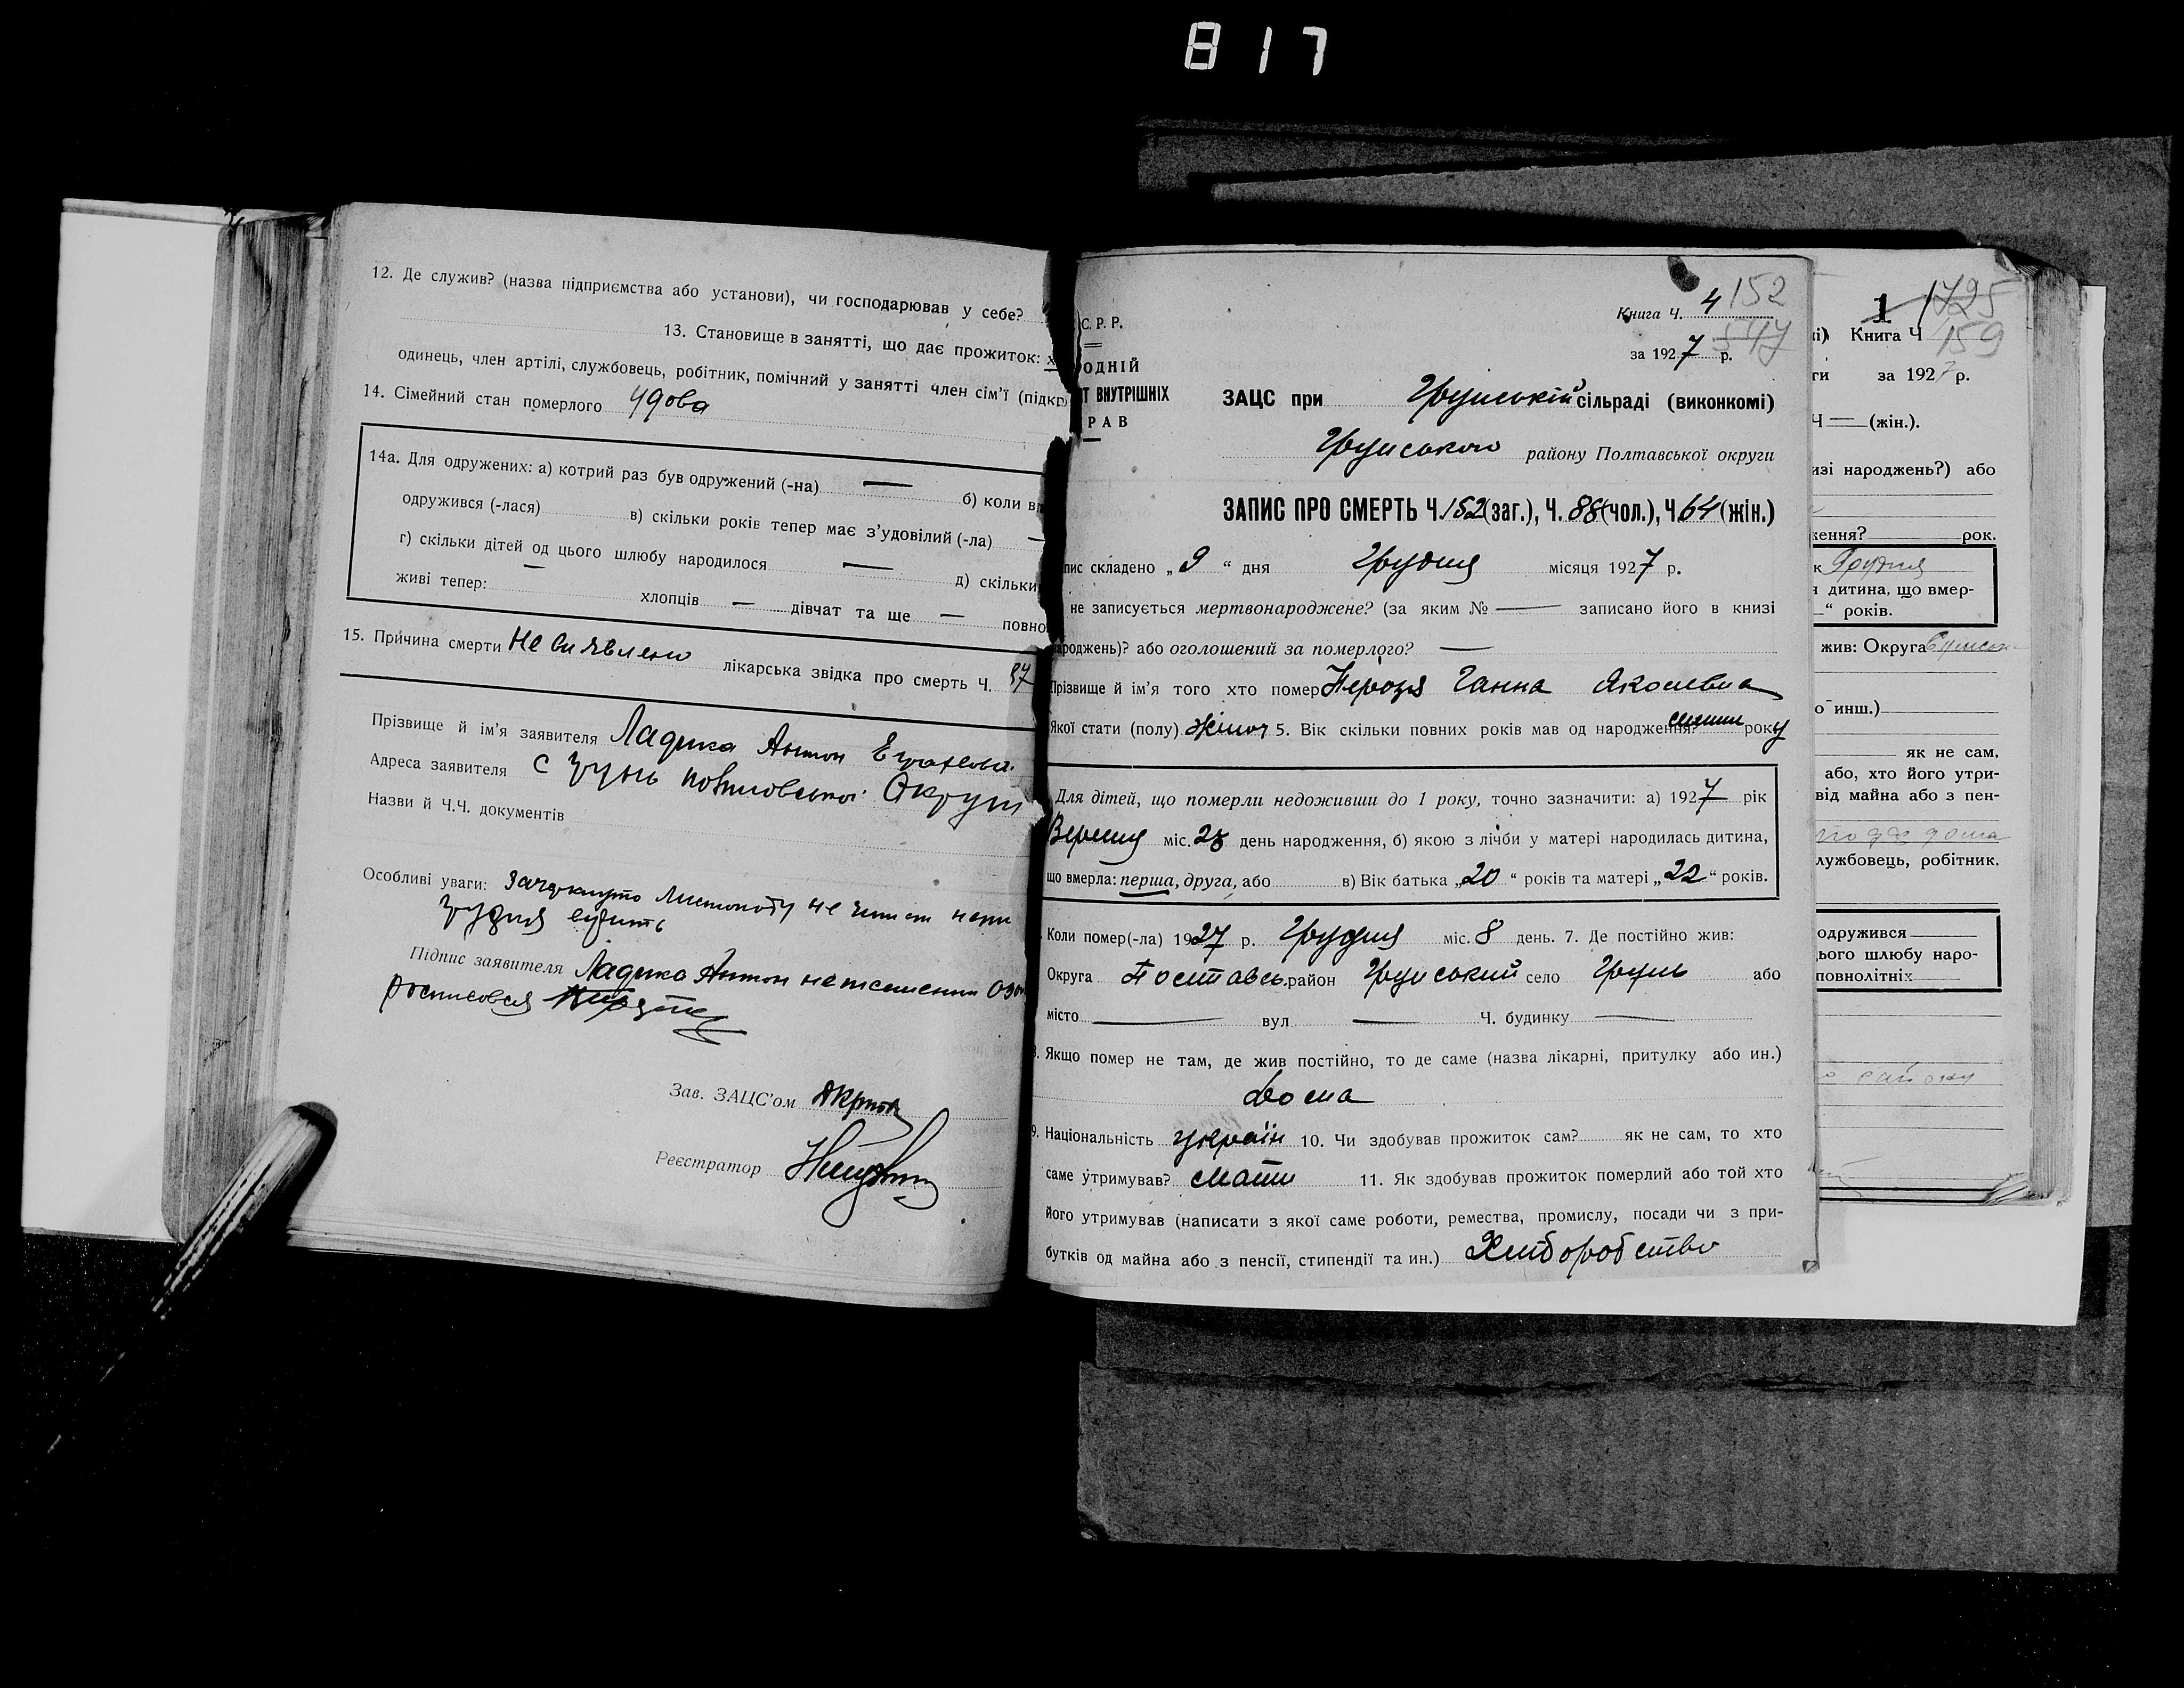 817
12. Де служив? (назва підприємства або установи), чи господарював у себе?
13. Становище в занятті, що дає прожиток: х
одинець, член артілі, службовець, робітник, помічний у занятті член сім’ї (підкр
14. Сімейний стан померлого удова
14а. Для одружених: а) котрий раз був одружений (-на) — б) коли в
одружився (-лася) в) скільки років тепер має з’удовілий (-ла) —
г) скільки дітей од цього шлюбу народилося — д) скільки
живі тепер: — хлопців — дівчат та ще — повно
15. Причина смерти Не виявлено лікарська звідка про смерть Ч.
Прізвище й ім’я заявителя Ладика Антон
Адреса заявителя с Грунь Округи
Назви й Ч.Ч. документів
Особливі уваги: Зачеркнуто Листопаду не
грудня
Підпис заявителя Ладика Антон
росписовся
Зав. ЗАЦС’ом
Реєстратор
С. Р. Р.
ОДНІЙ
Т ВНУТРІШНІХ
РАВ
Книга Ч. 4 152
547
за 1927 р.
ЗАЦС при Груньській сільраді (виконкомі)
Груньського району Полтавської округи
ЗАПИС ПРО СМЕРТЬ Ч. 152 (заг.), Ч. 88 (чол.), Ч. 64 (жін.)
пис складено „9“ дня Грудня місяця 1927 р.
не записується мертвонароджене? (за яким № — записано його в книзі
ароджень)? або оголошений за померлого? —
Прізвище й ім’я того хто помер Ганна Яковлевна
Якої стати (полу) жіноч 5. Вік скільки повних років мав од народження? року
Для дітей, що померли недоживши до 1 року, точно зазначити: а) 1927 рік
Вересня міс. 28 день народження, б) якою з лічби у матері народилась дитина,
що вмерла: перша, друга, або в) Вік батька „20“ років та матері „22“ років.
Коли помер(-ла) 1927 р. Грудня міс. 8 день. 7. Де постійно жив:
Округа Полтавсь. район Груньський село Грунь або
місто — вул — Ч. будинку —
8. Якщо помер не там, де жив постійно, то де саме (назва лікарні, притулку або ин.)
Дома
9. Національність україн 10. Чи здобував прожиток сам? як не сам, то хто
саме утримував? мати 11. Як здобував прожиток померлий або той хто
його утримував (написати з якої саме роботи, ремества, промислу, посади чи з при-
бутків од майна або з пенсії, стипендії та ин.) Хліборобство
1 1725
і) Книга Ч 159
ги за 1927 р.
Ч — (жін.).
изі народжень?) або
ження? рок.
к Грудня
я дитина, що вмер-
“ років.
жив: Округа
о инш.)
як не сам,
або, хто його утри-
від майна або з пен-
лужбовець, робітник,
одружився
ього шлюбу наро-
повнолітніх
району